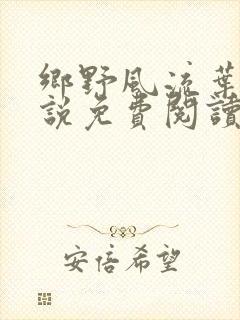 鄉野風流葉
說免費閱讀
安倍希望